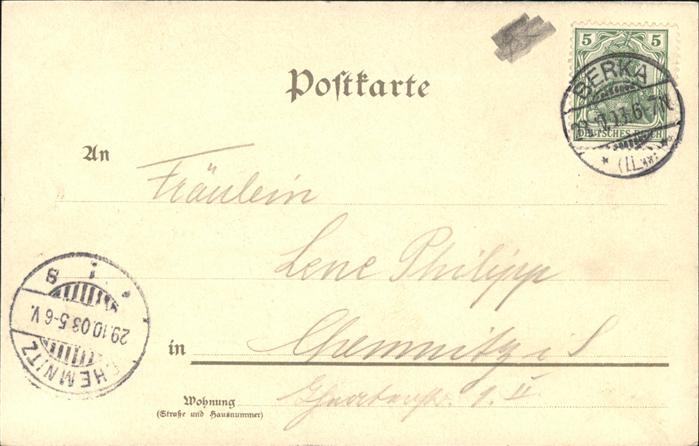 5 5
BERKA
DEUTSCHES REICH
(ILM)
Postkarte
An
Fräulein
Lene Philipp
in Chemnitz i S
Wohnung
(Straße und Hausnummer)
1. II
CHEMNITZ
29.10.03.5-6 V.
i S